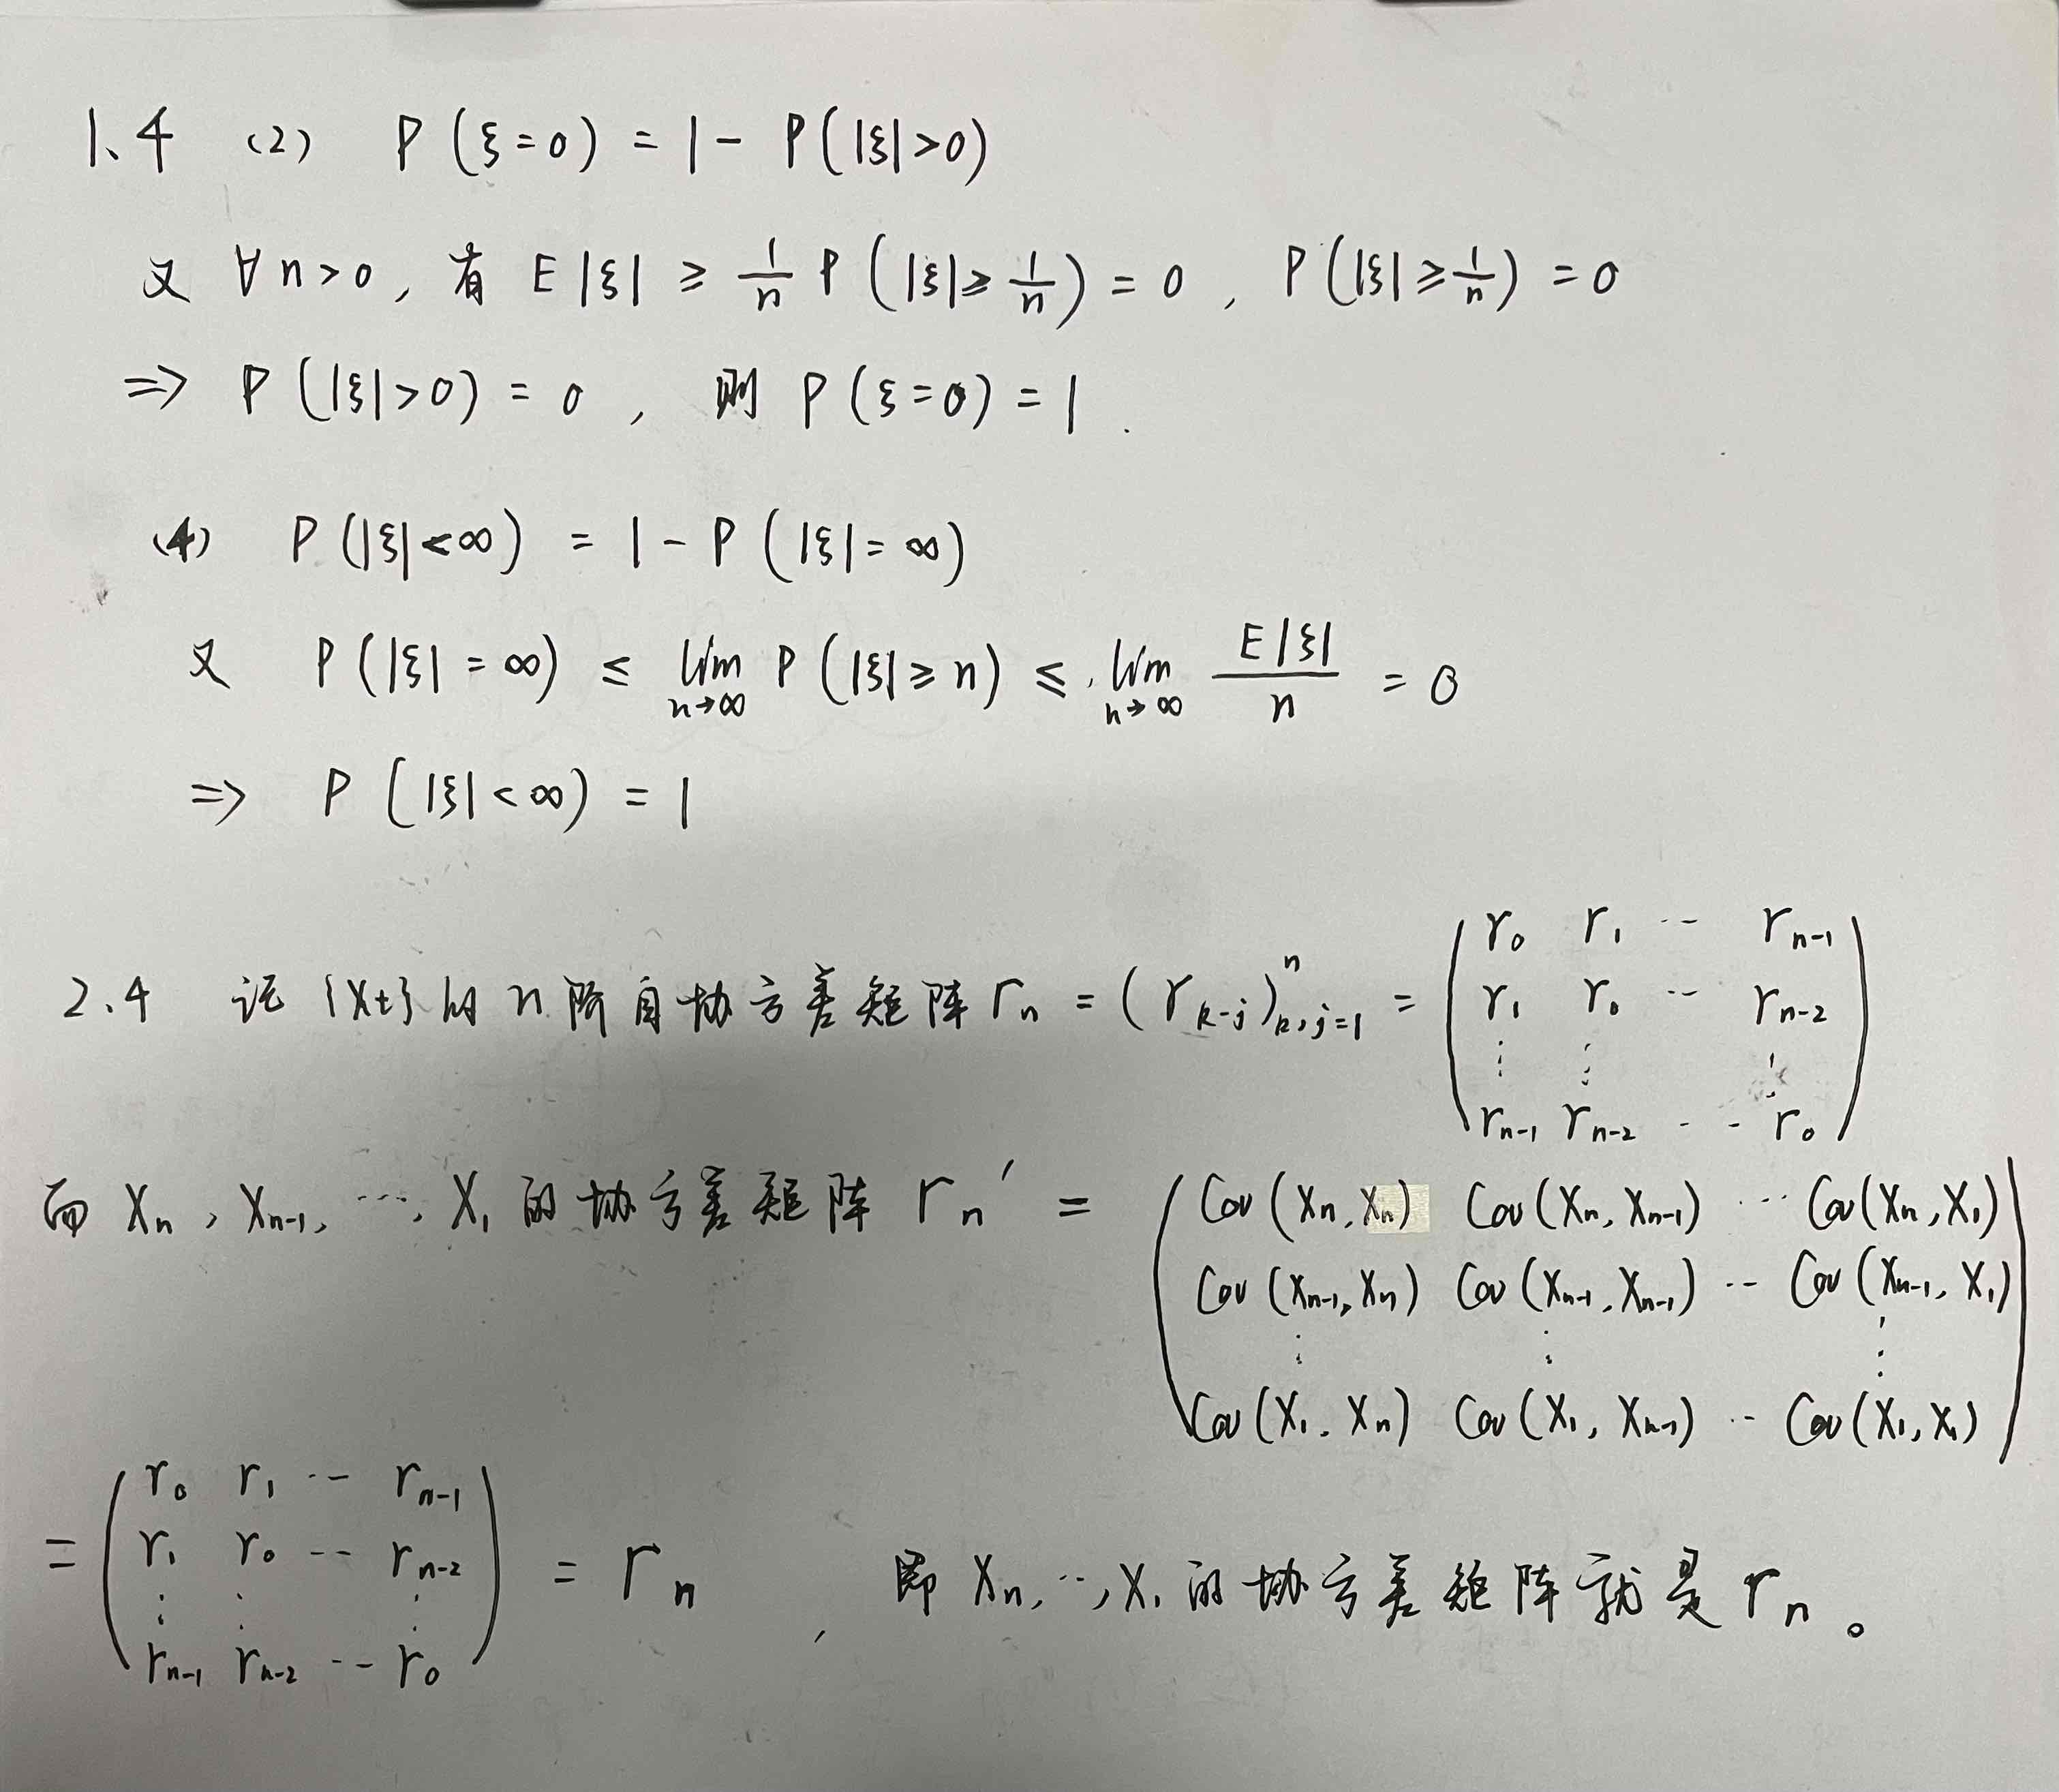 1.4 (2) P(ξ=0) = 1 - P(|ξ|>0)
又 ∀n>0, 有 E|ξ| ≥ 1/n P(|ξ|≥1/n) = 0, P(|ξ|≥1/n) = 0
=> P(|ξ|>0) = 0, 则 P(ξ=0) = 1.
(4) P(|ξ|<∞) = 1 - P(|ξ|=∞)
又 P(|ξ|=∞) ≤ lim_{n→∞} P(|ξ|≥n) ≤ lim_{n→∞} E|ξ|/n = 0
=> P(|ξ|<∞) = 1
2.4 记{Xt}的n阶自协方差矩阵 Γ_n = (γ_{k-j})_{k,j=1}^n = ( γ_0 γ_1 ⋯ γ_{n-1}
γ_1 γ_0 ⋯ γ_{n-2}
⋮ ⋮ ⋮
γ_{n-1} γ_{n-2} ⋯ γ_0 )
而 X_n, X_{n-1}, ⋯, X_1 的协方差矩阵 Γ_n' = ( Cov(X_n, X_n) Cov(X_n, X_{n-1}) ⋯ Cov(X_n, X_1)
Cov(X_{n-1}, X_n) Cov(X_{n-1}, X_{n-1}) ⋯ Cov(X_{n-1}, X_1)
⋮ ⋮ ⋮
Cov(X_1, X_n) Cov(X_1, X_{n-1}) ⋯ Cov(X_1, X_1) )
= ( γ_0 γ_1 ⋯ γ_{n-1}
γ_1 γ_0 ⋯ γ_{n-2}
⋮ ⋮ ⋮
γ_{n-1} γ_{n-2} ⋯ γ_0 ) = Γ_n, 即 X_n, ⋯, X_1 的协方差矩阵就是 Γ_n。